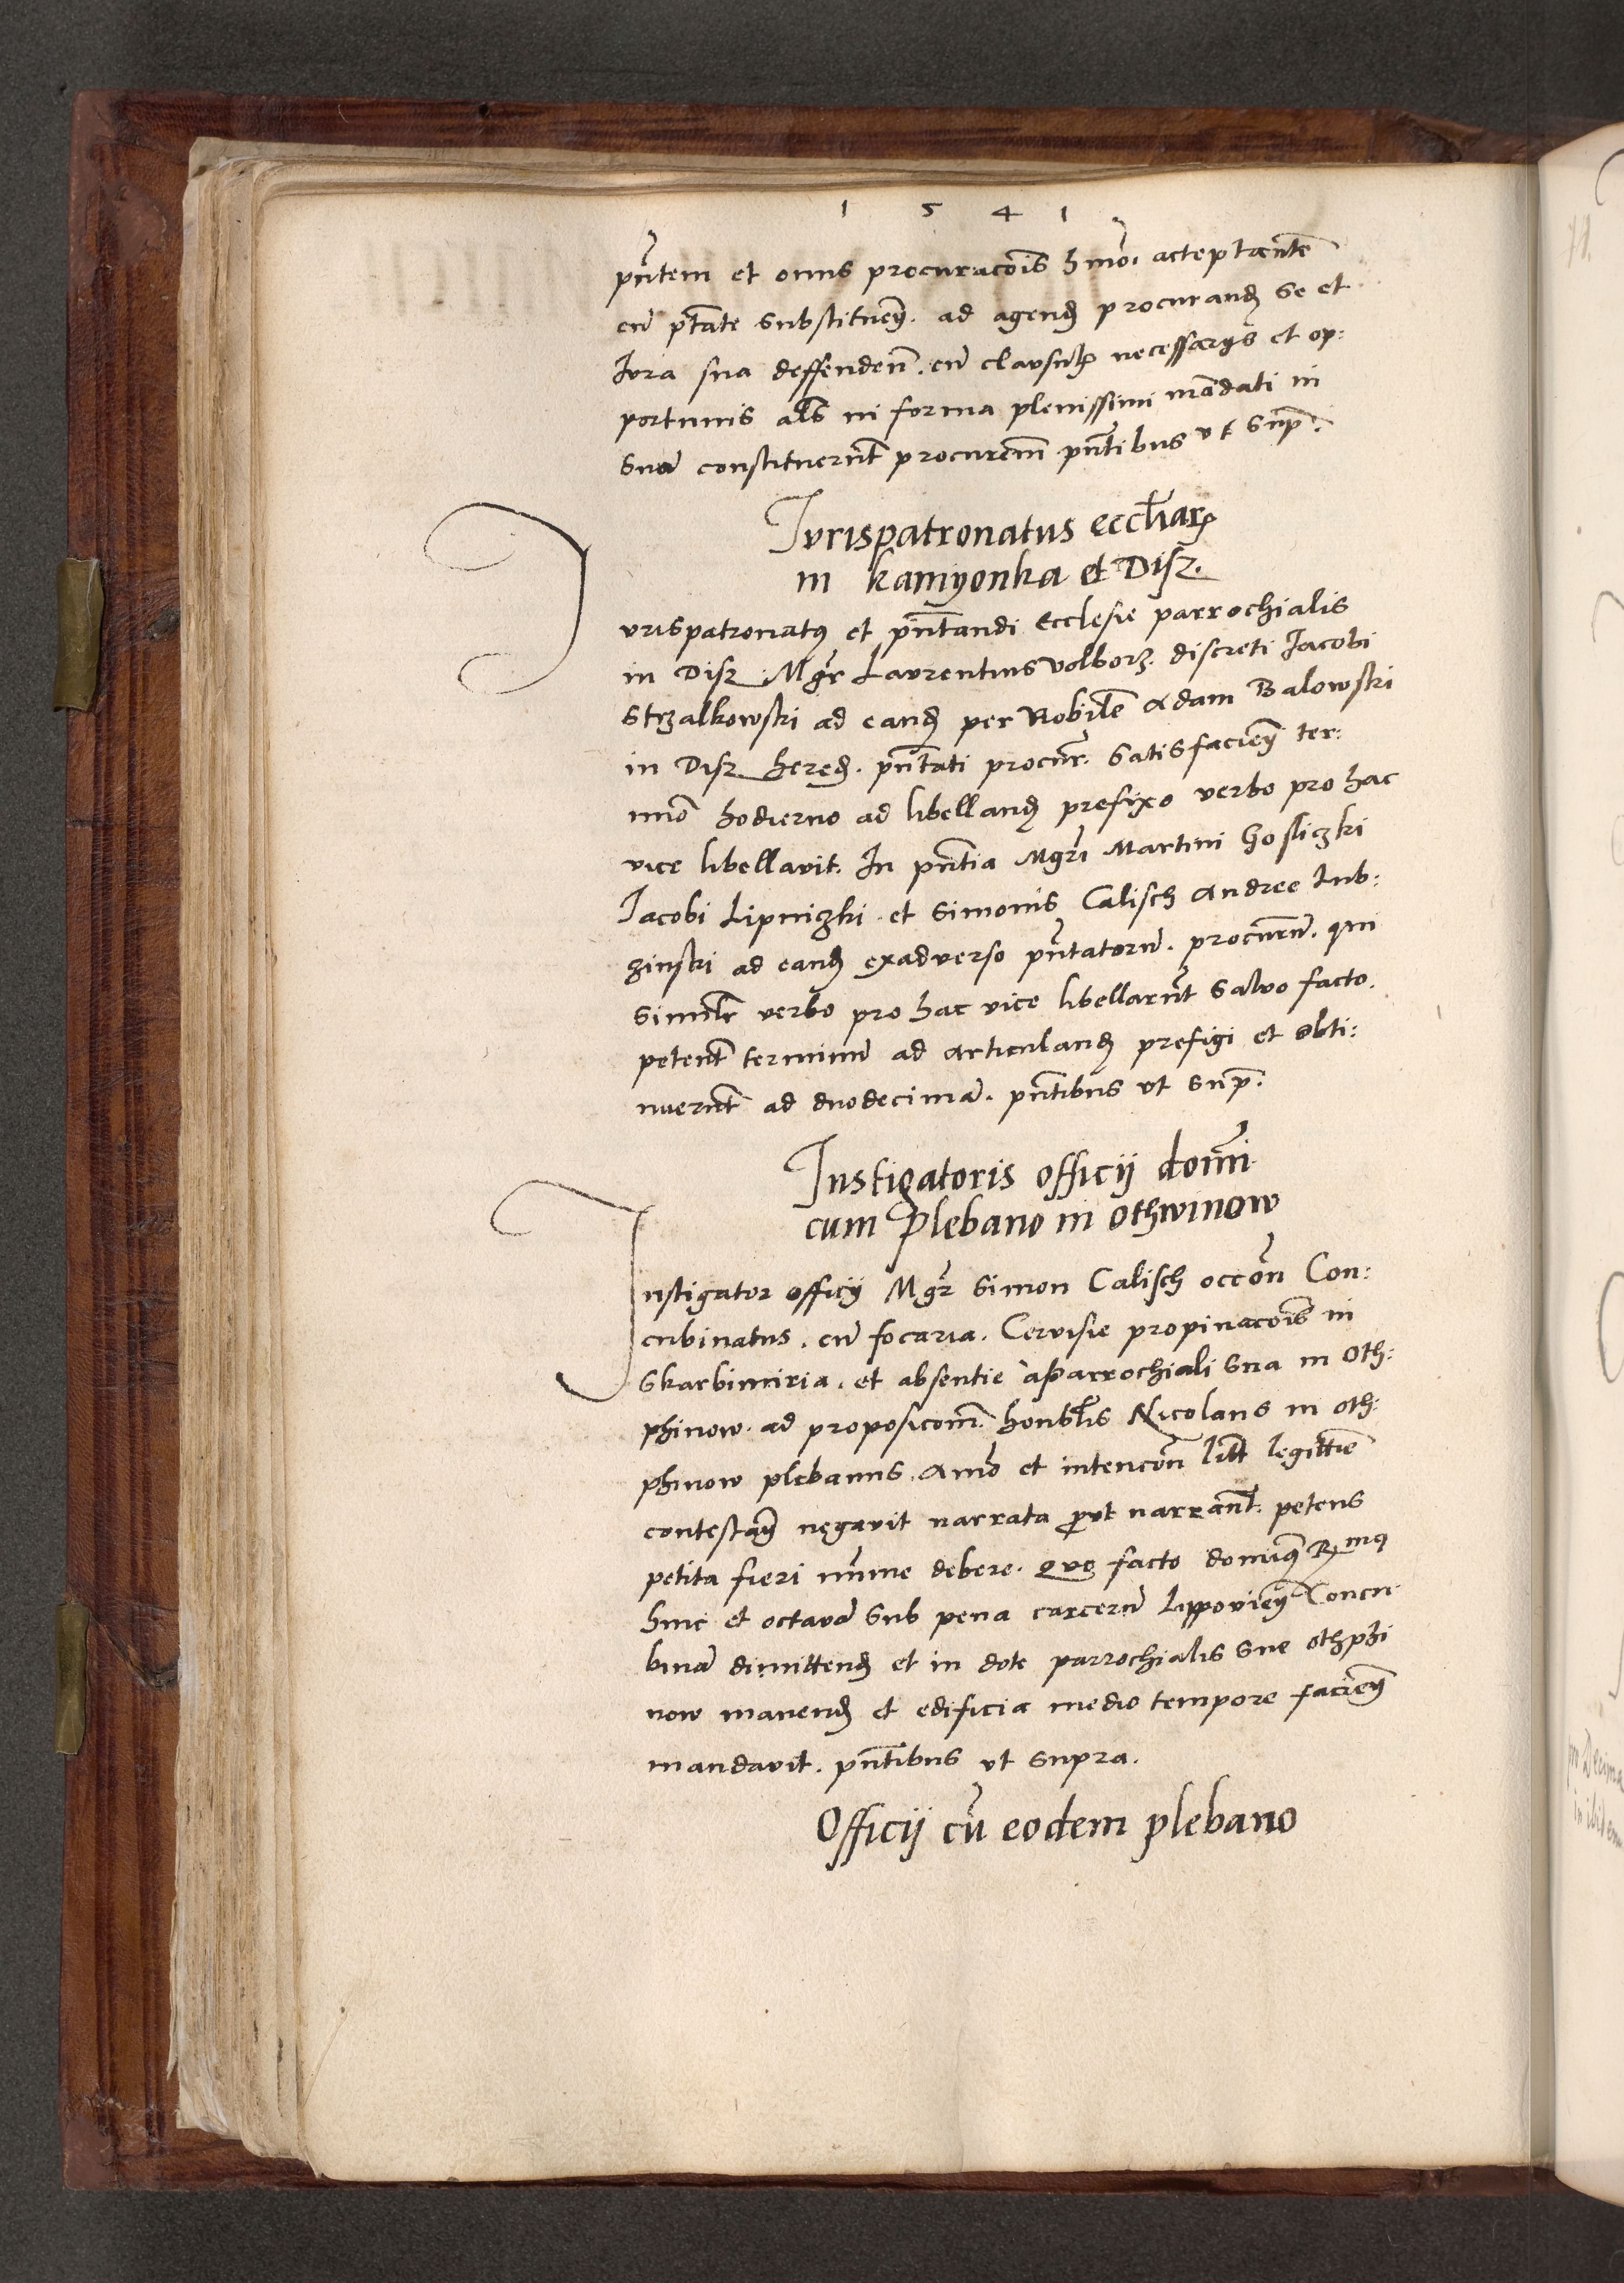 1 5 4 1
pñtem et onus procuracõis hmõi acceptantẽ
cũ ptãte substituenḋ. ad agenḋ procuranḋ se et
Iura sua deffendenḋ. cũ clausulis necessarijs et op:
portunis als̃ in forma plenissimi mãdati in
suũ constituerñt procurem̃ pñtibus ut sup̃.
Jurispatronatus eccl̃iarꝝ
in kamyonka et Disz.
Jurispatronatꝰ et pñtandi Ecclesie parrochialis
in Disz. Mg̃r Laurentius Volborz. discreti Iacobi
Strzalkowski ad eanḋ per Nobilẽ Adam Balowski
in Disz hereḋ. pñtati procur̃. satisfacienḋ ter:
mĩo hodierno ad libellanḋ prefixo verbo pro hac
vice libellavit. In pñtia Mgr̃i Martini Gosliczki
Jacobi Lipniczki et Simonis Calisch Andree Lub:
zinski ad eanḋ exadverso pñtatorũ. procur̃m. qui
similr̃ verbo pro hac vice libellarñt salvo facto.
petenꝉ terminũ ad articulanḋ prefigi et obti:
nuerñt ad duodecimã. pñtibus ut sup̃.
Instigatoris officij domĩ
cum Plebano in Othwinow
Instigator officij Mgr̃ Simon Calisch occõn Con:
cubinatus. cũ focaria. Cervisie propinacõis in
Skarbimiria. et absentie a parrochiali sua in Oth:
phinow. ad proposicõm. honobl̃is Nicolaus in Oth:
phinow plebanus. Anĩo et intencõn lit̃t legittĩe
contestanḋ negavit narrata put narrant̃. petens
petita fieri mĩme debere. Quo facto dominꝰ Rmꝰ
hinc et octavã sub pena carcerũ Lippovienḋ Concu:
binã dimittenḋ et in dote parrochialis sue Othphi
now manenḋ et edificia medio tempore facienḋ
mandavit. pñtibus ut supra.
Officij cũ eodem plebano